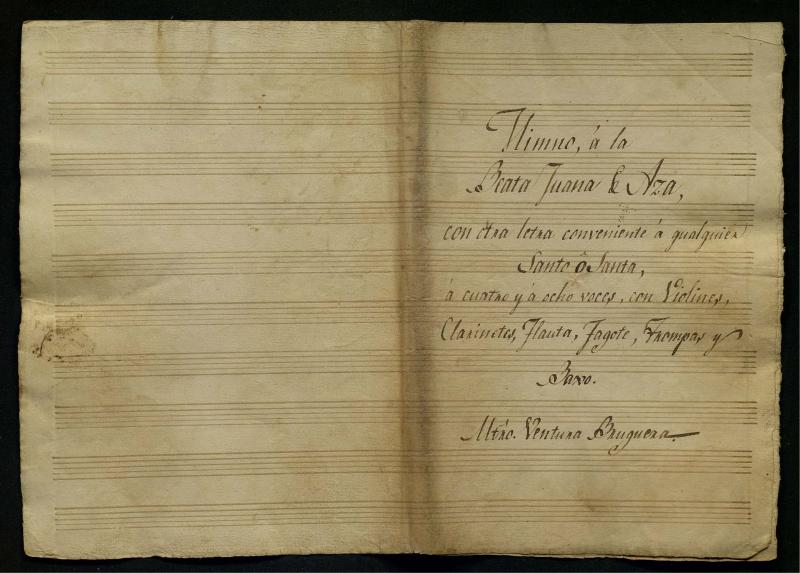 Himno, á la
Beata Juana de Aza,
con ótra letra conveniente á qualquier
Santo ó Santa,
á cuatro y á ocho voces, con Violines,
Clarinetes, Flauta, Fagote, Trompas y
Baxo.
Mtro. Ventura Bruguera.